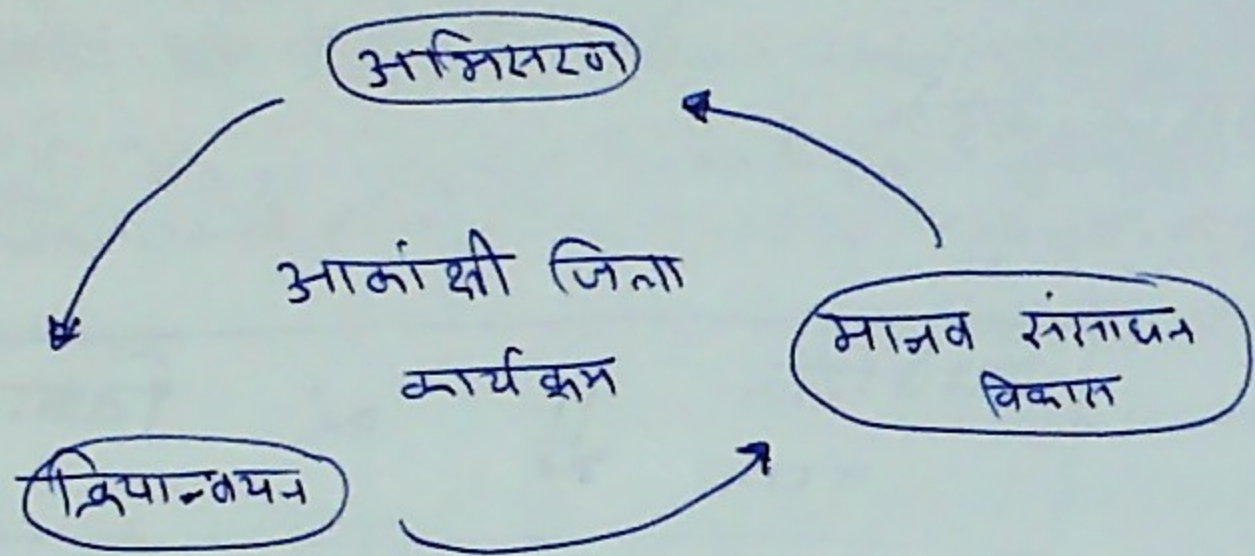 अभिसरण
आकांक्षी जिला
कार्यक्रम
मानव संसाधन
विकास
क्रियान्वयन